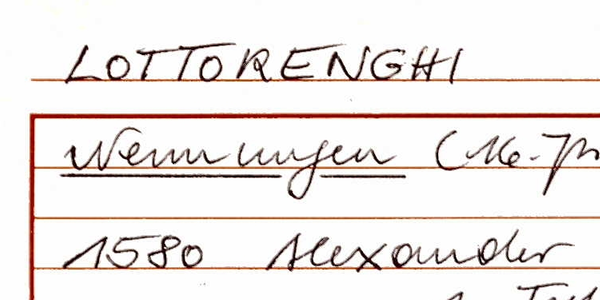 LOTTORENGHI
Nennungen (16. Jh
1580 Alexander